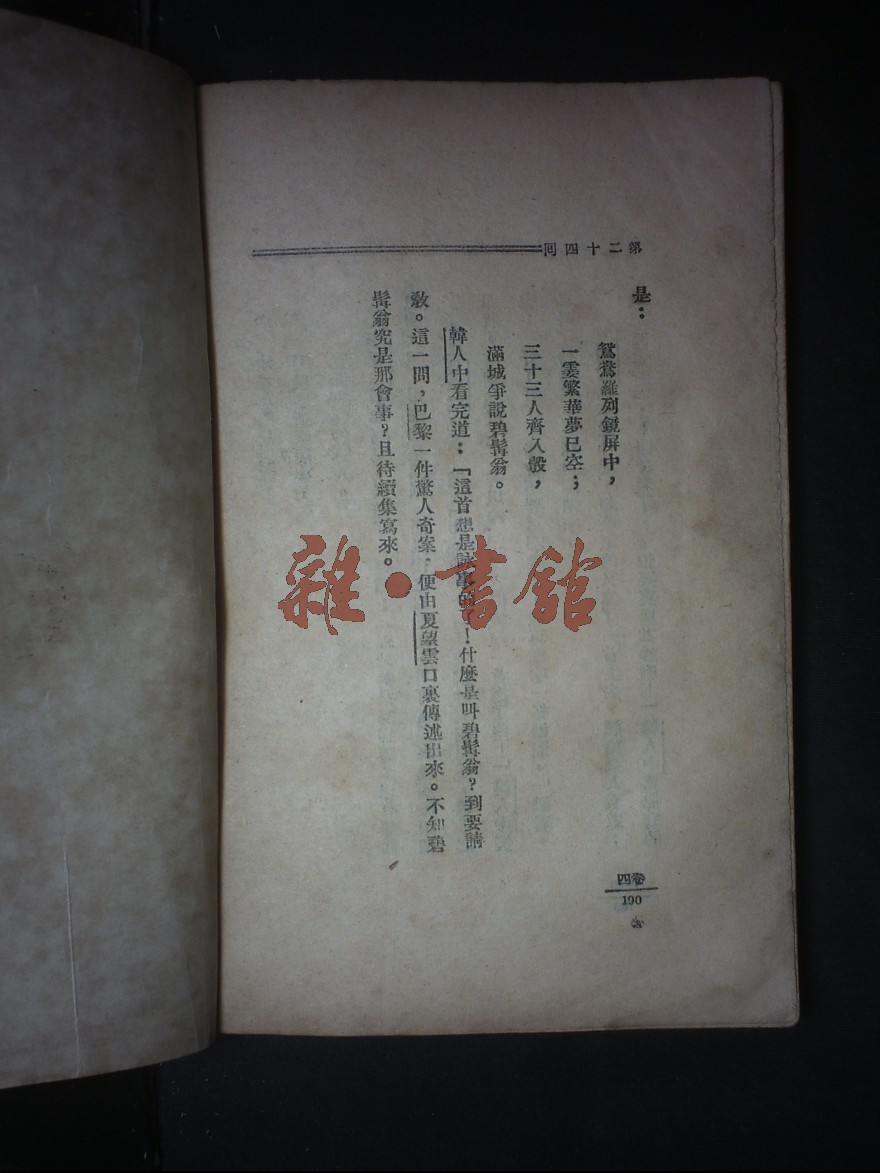 第二十四囘
是：
鴛鴦羅列鏡屏中，
一霎繁華夢已空；
三十三人齊入彀，
滿城爭說碧髯翁。
韓人中看完道：「這首想是詠事的！什麼是叫碧髯翁？到要請
敎。這一問，巴黎一件驚人奇案，便由夏望雲口裏傳述出來。不知碧
髯翁究是那會事？且待續集寫來。
卷四
190
雜·書館